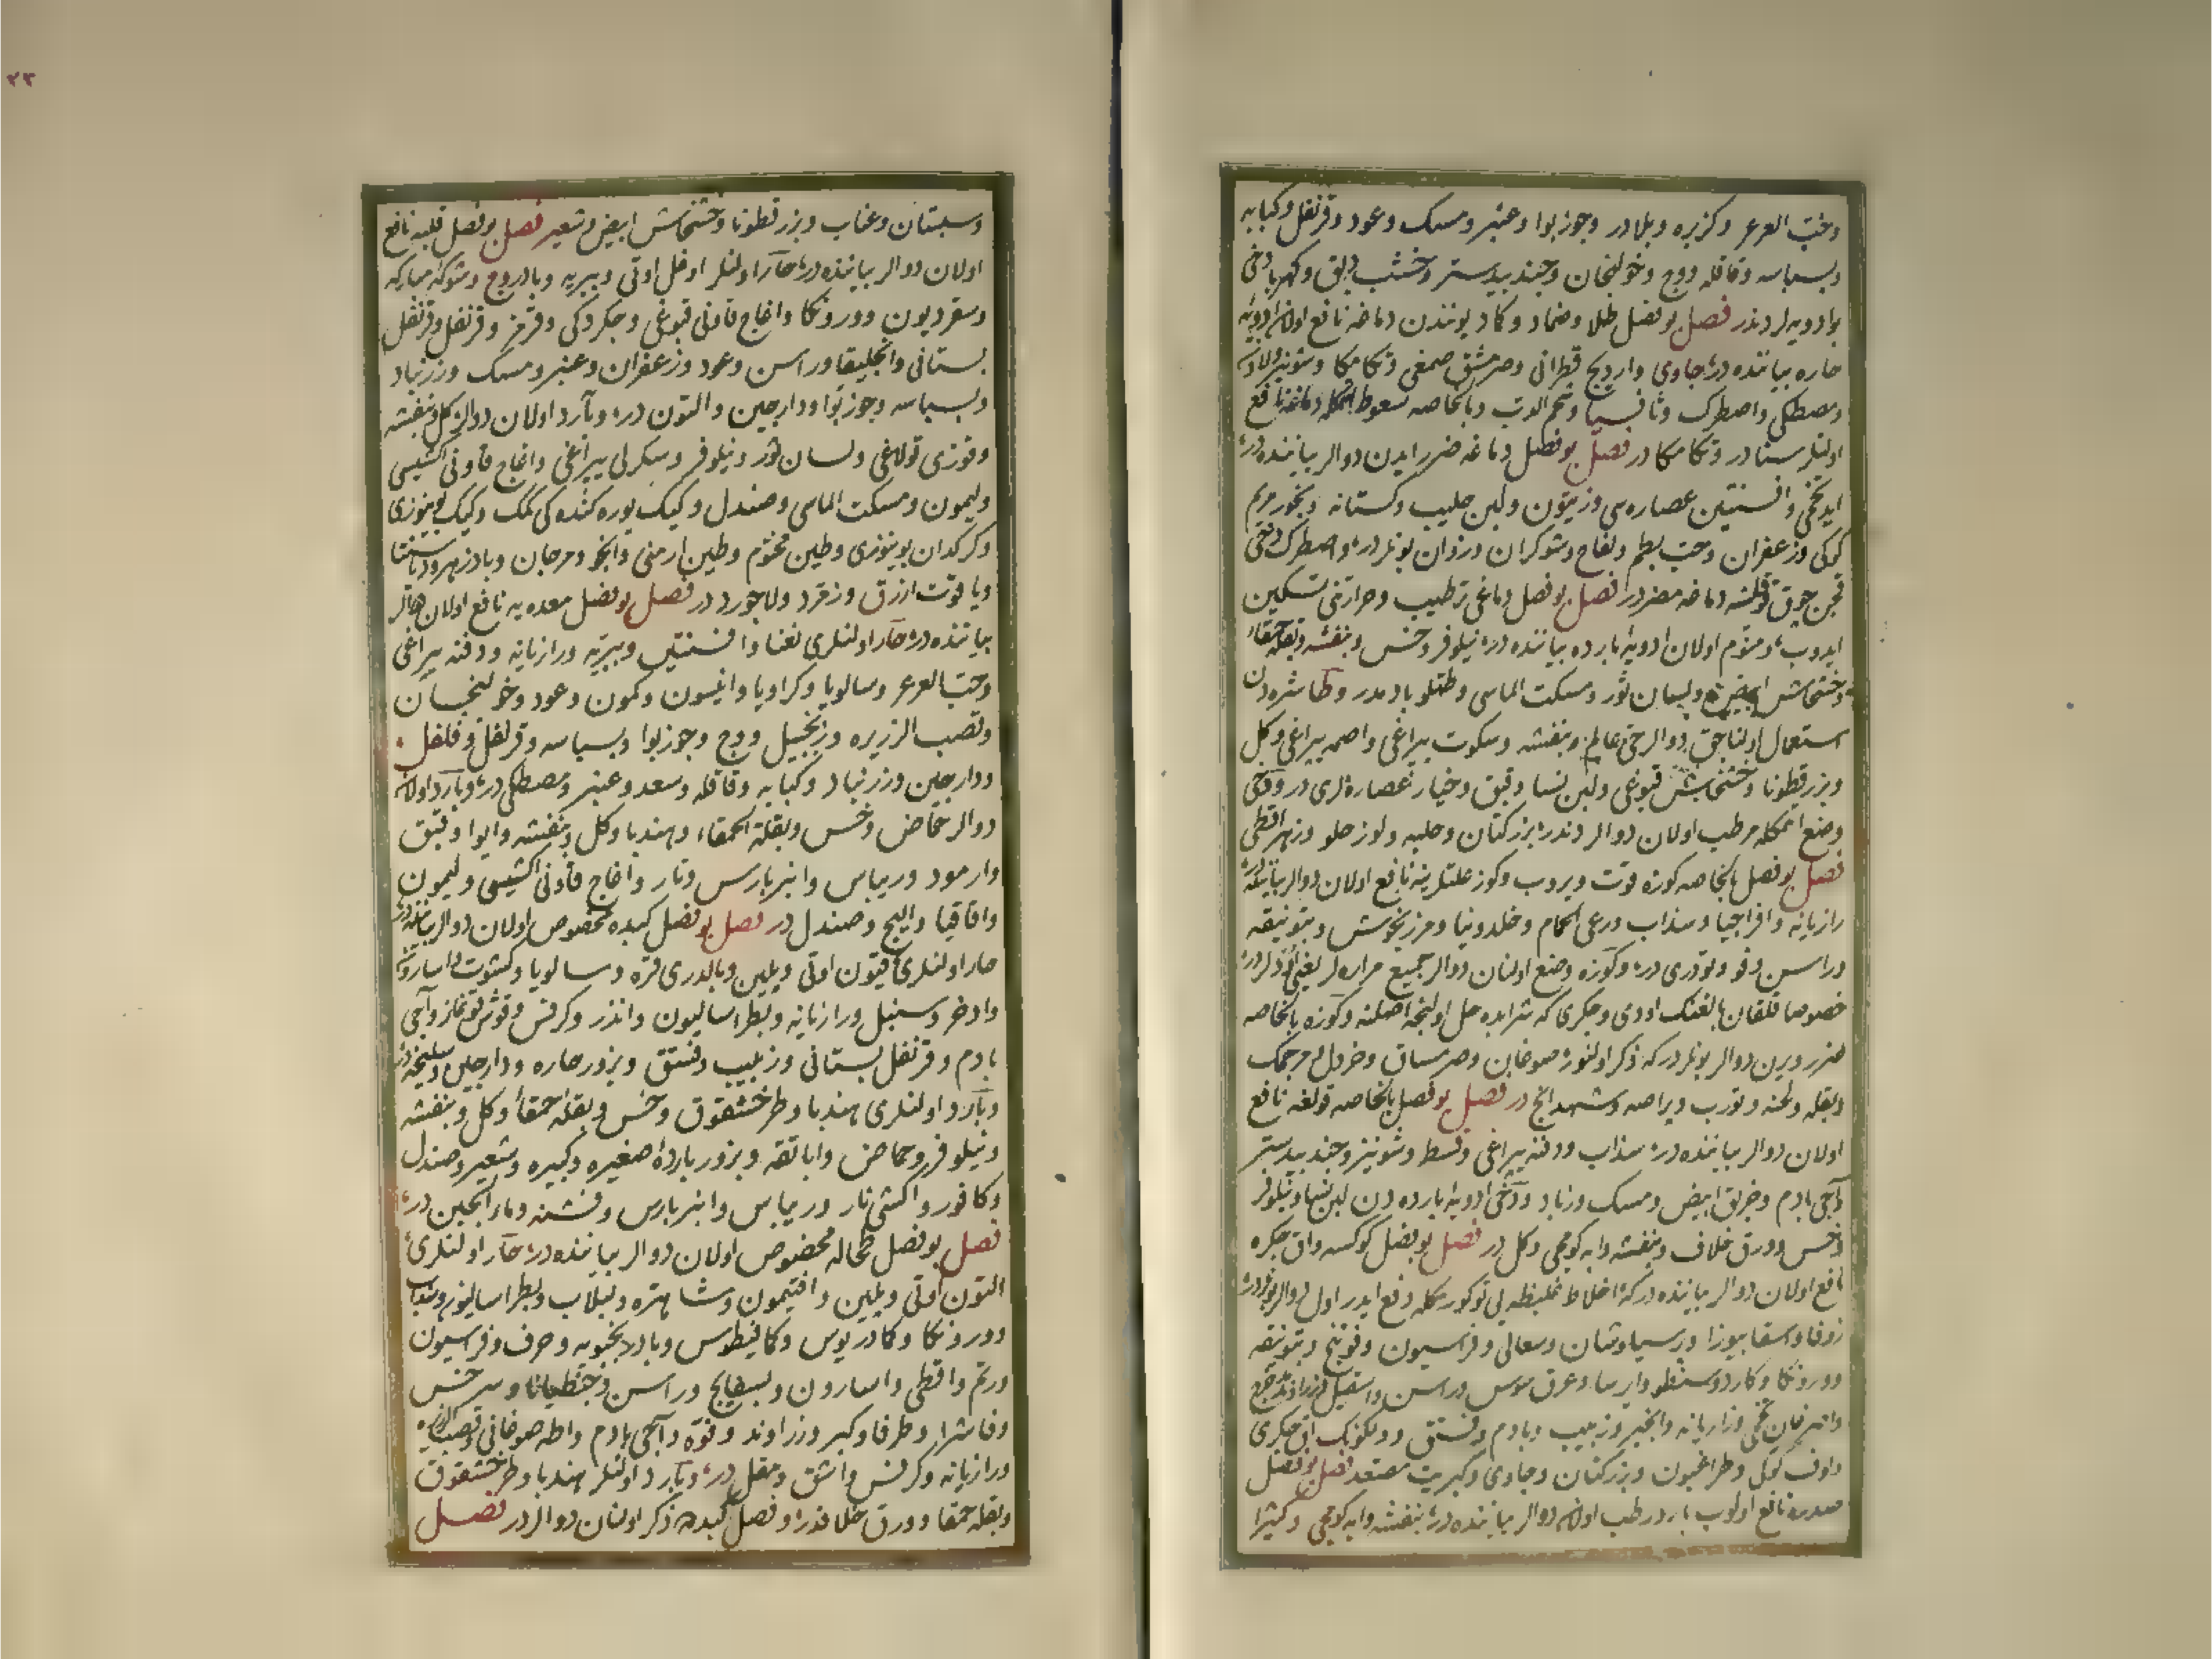 وحب العرعر وكزبره وبلادر وجوزبوا وعنبر ومسك وعود وقرنفل وكبابه
وبسباسه وقاقله ووج وخولنجان وجندبیدستر وخشب دبق وكهربا دخی
بوادویه لردندر فصل بو فصل طلا وضماد وكماد یوزندن دماغه نافع اولان ادویهٔ
حاره بیاننده در جاوی واردیج قطرانی وصرمشق صمغی وتكامكا وشونیز ولادن
ومصطكی واصطرك وثافسیا وتخم الدب وبالخاصه سعوط اتمكله دماغه نافع
اولنلر سنا در وتكامكا در فصل بو فصل دماغه ضرر ایدن دوالر بیاننده در
افسنتین عصاره سی وزیتون ولبن حلیب وكستانه وبخور مریم
كوكی وزعفران وحب بطم ولفاح وشوكران وزوان بونلر در واصطرك دخی
قچن چوق قوللنسه دماغه مضر در فصل بو فصل دماغی ترطیب وحرارتنی تسكین
ایدوب ومنوم اولان ادویهٔ بارده بیاننده در نیلوفر وخس وبنفشه وبقلة حمقا
وخشخاش ابیض ولسان ثور ومسكت الماسی وطتلو بادمدر وطاشره دن
استعمال اولناجق دوالر حی عالم وبنفشه وسكوت یپراغی واصمه یپراغی وكل
وبزرقطونا وخشخاش قبوغی ولبن نسا وقبق وخیار عصاره لری در ودخی
وضع اتمكله مرطب اولان دوالر دندر بزركتان وحلبه ولوز حلو وزهر اقطی
فصل بو فصل بالخاصه كوزه قوت ویروب وكوز علتلرینه نافع اولان دوالر بیاننده در
رازیانه وافراجیا وسذاب ورعی الحمام وخلدونیا ومرزنجوش وبتونیقه
وراسن وفو وتودری در وكوزه وضع اولنان دوالر جمیع مراره لر یعنی اودلر در
خصوصا قلقان بالغنك اودی وجكری كه شرابده حل اولنجه اصلنه وكوزه بالخاصه
ضرر ویرن دوالر بونلردر كه ذكر اولنور صوغان وصرمساق وخردل مرجمك
وبقله ولحنه وتورب وپراصه وشهدانج در فصل بو فصل بالخاصه قولغه نافع
اولان دوالر بیاننده در سذاب ودفنه یپراغی وقسط وشونیز وجندبیدستر
وآجی بادم وخربق ابیض ومسك وزباد ودخی ادویهٔ بارده دن لبن نسا ونیلوفر
وخس وورق خلاف وبنفشه وابه كومجی وكل در فصل بو فصل كوكسه واق جكره
نافع اولان دوالر بیاننده در كه اخلاط غلیظه یی توكورمكله دفع ایدر اول دوالر بونلردر
زوفا واسقابیوزا وپرسیاوشان وسعالی وفراسیون وفوتنج وبتونیقه
ودورونكا وكاردوسنقطو وایرسا وعرق سوس وراسن واسقیل وزراوند مدحرج
تخمی ورازیانه وانجیر وزبیب وبادم وفستق ودلكونك اق جكری
وطراغیون وبزركتان وجاوی وكبریت فصل بو فصل
صدره نافع اولوب بارد رطب اولان دوالر بیاننده در بنفشه وابه كومجی وكثیرا
وسبستان وعناب وبزرقطونا وخشخاش ابیض وشعیر فصل بو فصل قلبه نافع
اولان دوالر بیاننده در حار اولنلر اوغل اوتی وبیریه وبادروج وشوكهٔ مباركه
وسقردیون ودورونكا واغاج قاونی قبوغی وجكردكی وقرمز وقرنفل وقرنفل
بستانی وانجلیقا وراسن وعود وزعفران وعنبر ومسك وزرنباد
وبسباسه وجوزبوا ودارچین والتون در وبارد اولان دوالر كل وبنفشه
وقوزی قولاغی ولسان ثور ونیلوفر وسكرلی یپراغی واغاج قاونی اكشیسی
ولیمون ومسكت الماسی وصندل وكیك یوره كنده كی كمك وكیك بوینوزی
وكركدان بوینوزی وطین مختوم وطین ارمنی وانجو ومرجان وبادزهر
ویاقوت ازرق وزمرد ولاجورد در فصل بو فصل معده یه نافع اولان دوالر
بیاننده در حار اولنلری نعنا وافسنتین وبیریه ورازیانه ودفنه یپراغی
وحب العرعر وسالویا وكراویا وانیسون وكمون وعود وخولنجان
وقصب الزریره وزنجبیل ووج وجوزبوا وبسباسه وقرنفل وفلفل
ودارچین وزرنباد وكبابه وقاقله وسعد وعنبر ومصطكی در وبارد اولان
دوالر حماض وخس وبقلة الحمقاء وهندبا وكل وبنفشه وایوا وقبق
وارمود وریباس وانبرباریس ونار واغاج قاونی اكشیسی ولیمون
واقاقیا واهلیلج وصندل در فصل بو فصل كبده مخصوص اولان دوالر بیاننده در
حار اولنلری قیون اوتی وپلین وبالدری قره وسالویا وكشوت واسارون
واذخر وسنبل ورازیانه وبطراسالیون واندز وكرفس وقوش قونماز وآجی
بادم وقرنفل بستانی وزبیب وفستق وبزور حاره ودارچین وسلیخه در
وبارد اولنلری هندبا وطرخشقوق وخس وبقلهٔ حمقا وكل وبنفشه
ونیلوفر وحماض واباتقه وبزور باردهٔ صغیره وكبیره وشعیر وصندل
وكافور واكشی نار وریباس وانبرباریس وفشنه وماء الجبن در
فصل بو فصل طحاله مخصوص اولان دوالر بیاننده در حار اولنلری
التون اوتی وپلین وافتیمون وشاهتره ولبلاب وبطراسالیون وسذاب
ودورونكا وكادریوس وكمافیطوس وبادرنجبویه وحرف وفراسیون
ورتم واقطی واسارون وبسفایج وراسن وجنطیانا وسرخس
وفاشرا وطرفا وكبر وزراوند وفوه وآجی بادم واطه صوغانی وقصب الذریره
ورازیانه وكرفس واشق ومقل در وبارد اولنلر هندبا وطرخشقوق
وبقله حمقا وورق خلافدر وفصل كبده ذكر اولنان دوالر در فصل